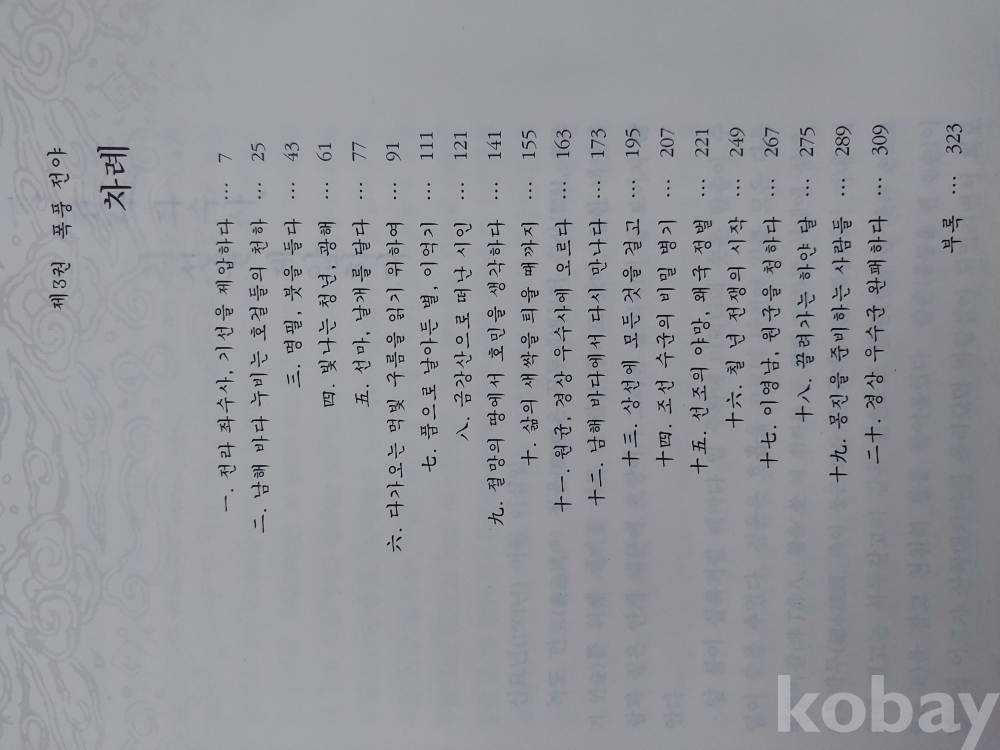 제3권 폭풍 전야
차례
一. 전라 좌수사, 기선을 제압하다 ... 7
二. 남해 바다 누비는 호걸들의 천하 ... 25
三. 명필, 붓을 들다 ... 43
四. 빛나는 청년, 광해 ... 61
五. 선마, 날개를 달다 ... 77
六. 다가오는 먹빛 구름을 읽기 위하여 ... 91
七. 품으로 날아든 별, 이억기 ... 111
八. 금강산으로 떠난 시인 ... 121
九. 절망의 땅에서 호민을 생각하다 ... 141
十. 삶의 새싹을 틔울 때까지 ... 155
十一. 원균, 경상 우수사에 오르다 ... 163
十二. 남해 바다에서 다시 만나다 ... 173
十三. 상선에 모든 것을 걸고 ... 195
十四. 조선 수군의 비밀 병기 ... 207
十五. 선조의 야망, 왜국 정벌 ... 221
十六. 칠 년 전쟁의 시작 ... 249
十七. 이영남, 원군을 청하다 ... 267
十八. 끌려가는 하얀 달 ... 275
十九. 몽진을 준비하는 사람들 ... 289
二十. 경상 우수군 완패하다 ... 309
부록 ... 323
kobay